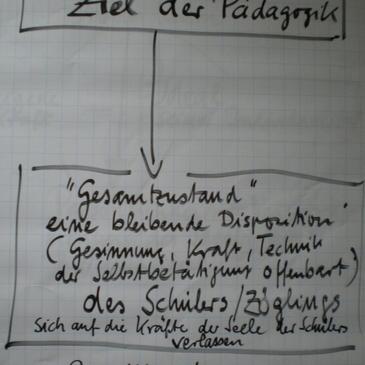 Ziel der Pädagogik
"Gesamtzustand"
eine bleibende Disposition"
(Gesinnung, Kraft, Technik
der Selbstbetätigung offenbart)
des Schülers/Zöglings
Sich auf die Kräfte der Seele der Schülers
verlassen